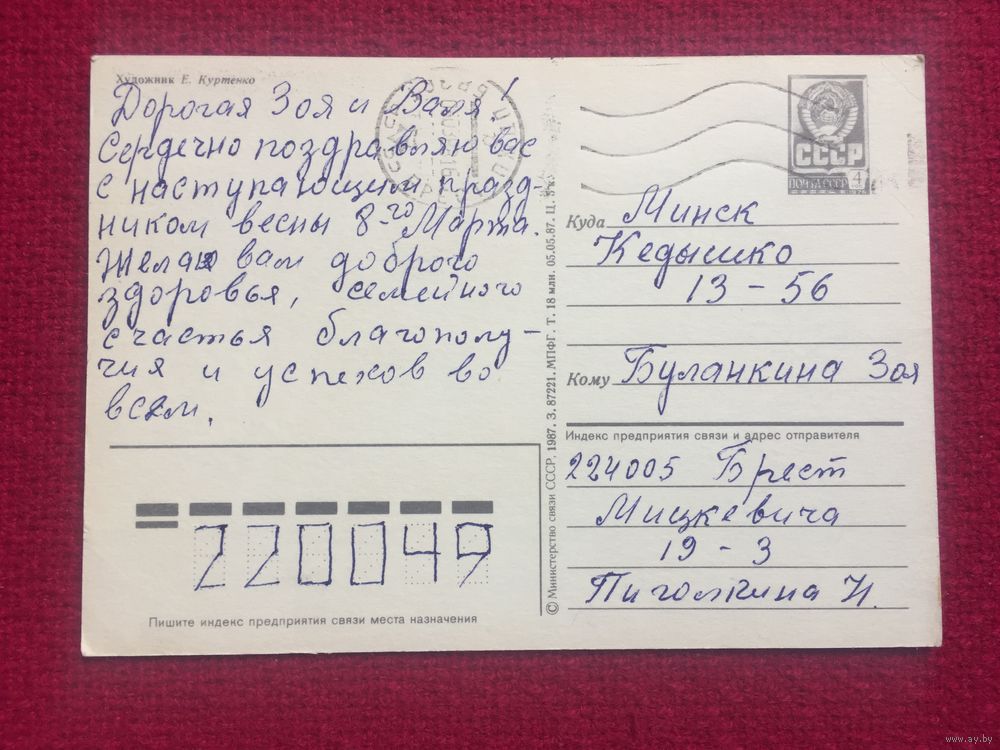 Художник Е. Куртенко
Дорогая Зоя и Валя!
Сердечно поздравляю вас
с наступающим празд-
ником весны 8-го Марта.
Желаю вам доброго
здоровья, семейного
счастья благополу-
чия и успехов во
всем.
220049
Пишите индекс предприятия связи места назначения
© Министерство связи СССР, 1987. З. 87221. МПФГ. Т. 18 млн. 05.05.87. Ц.
СССР
ПОЧТА СССР 4
Куда Минск
Кедышко
13-56
Кому Буланкина Зоя
Индекс предприятия связи и адрес отправителя
224005 Брест
Мицкевича
19-3
Пиголкина Н.
www.ay.by